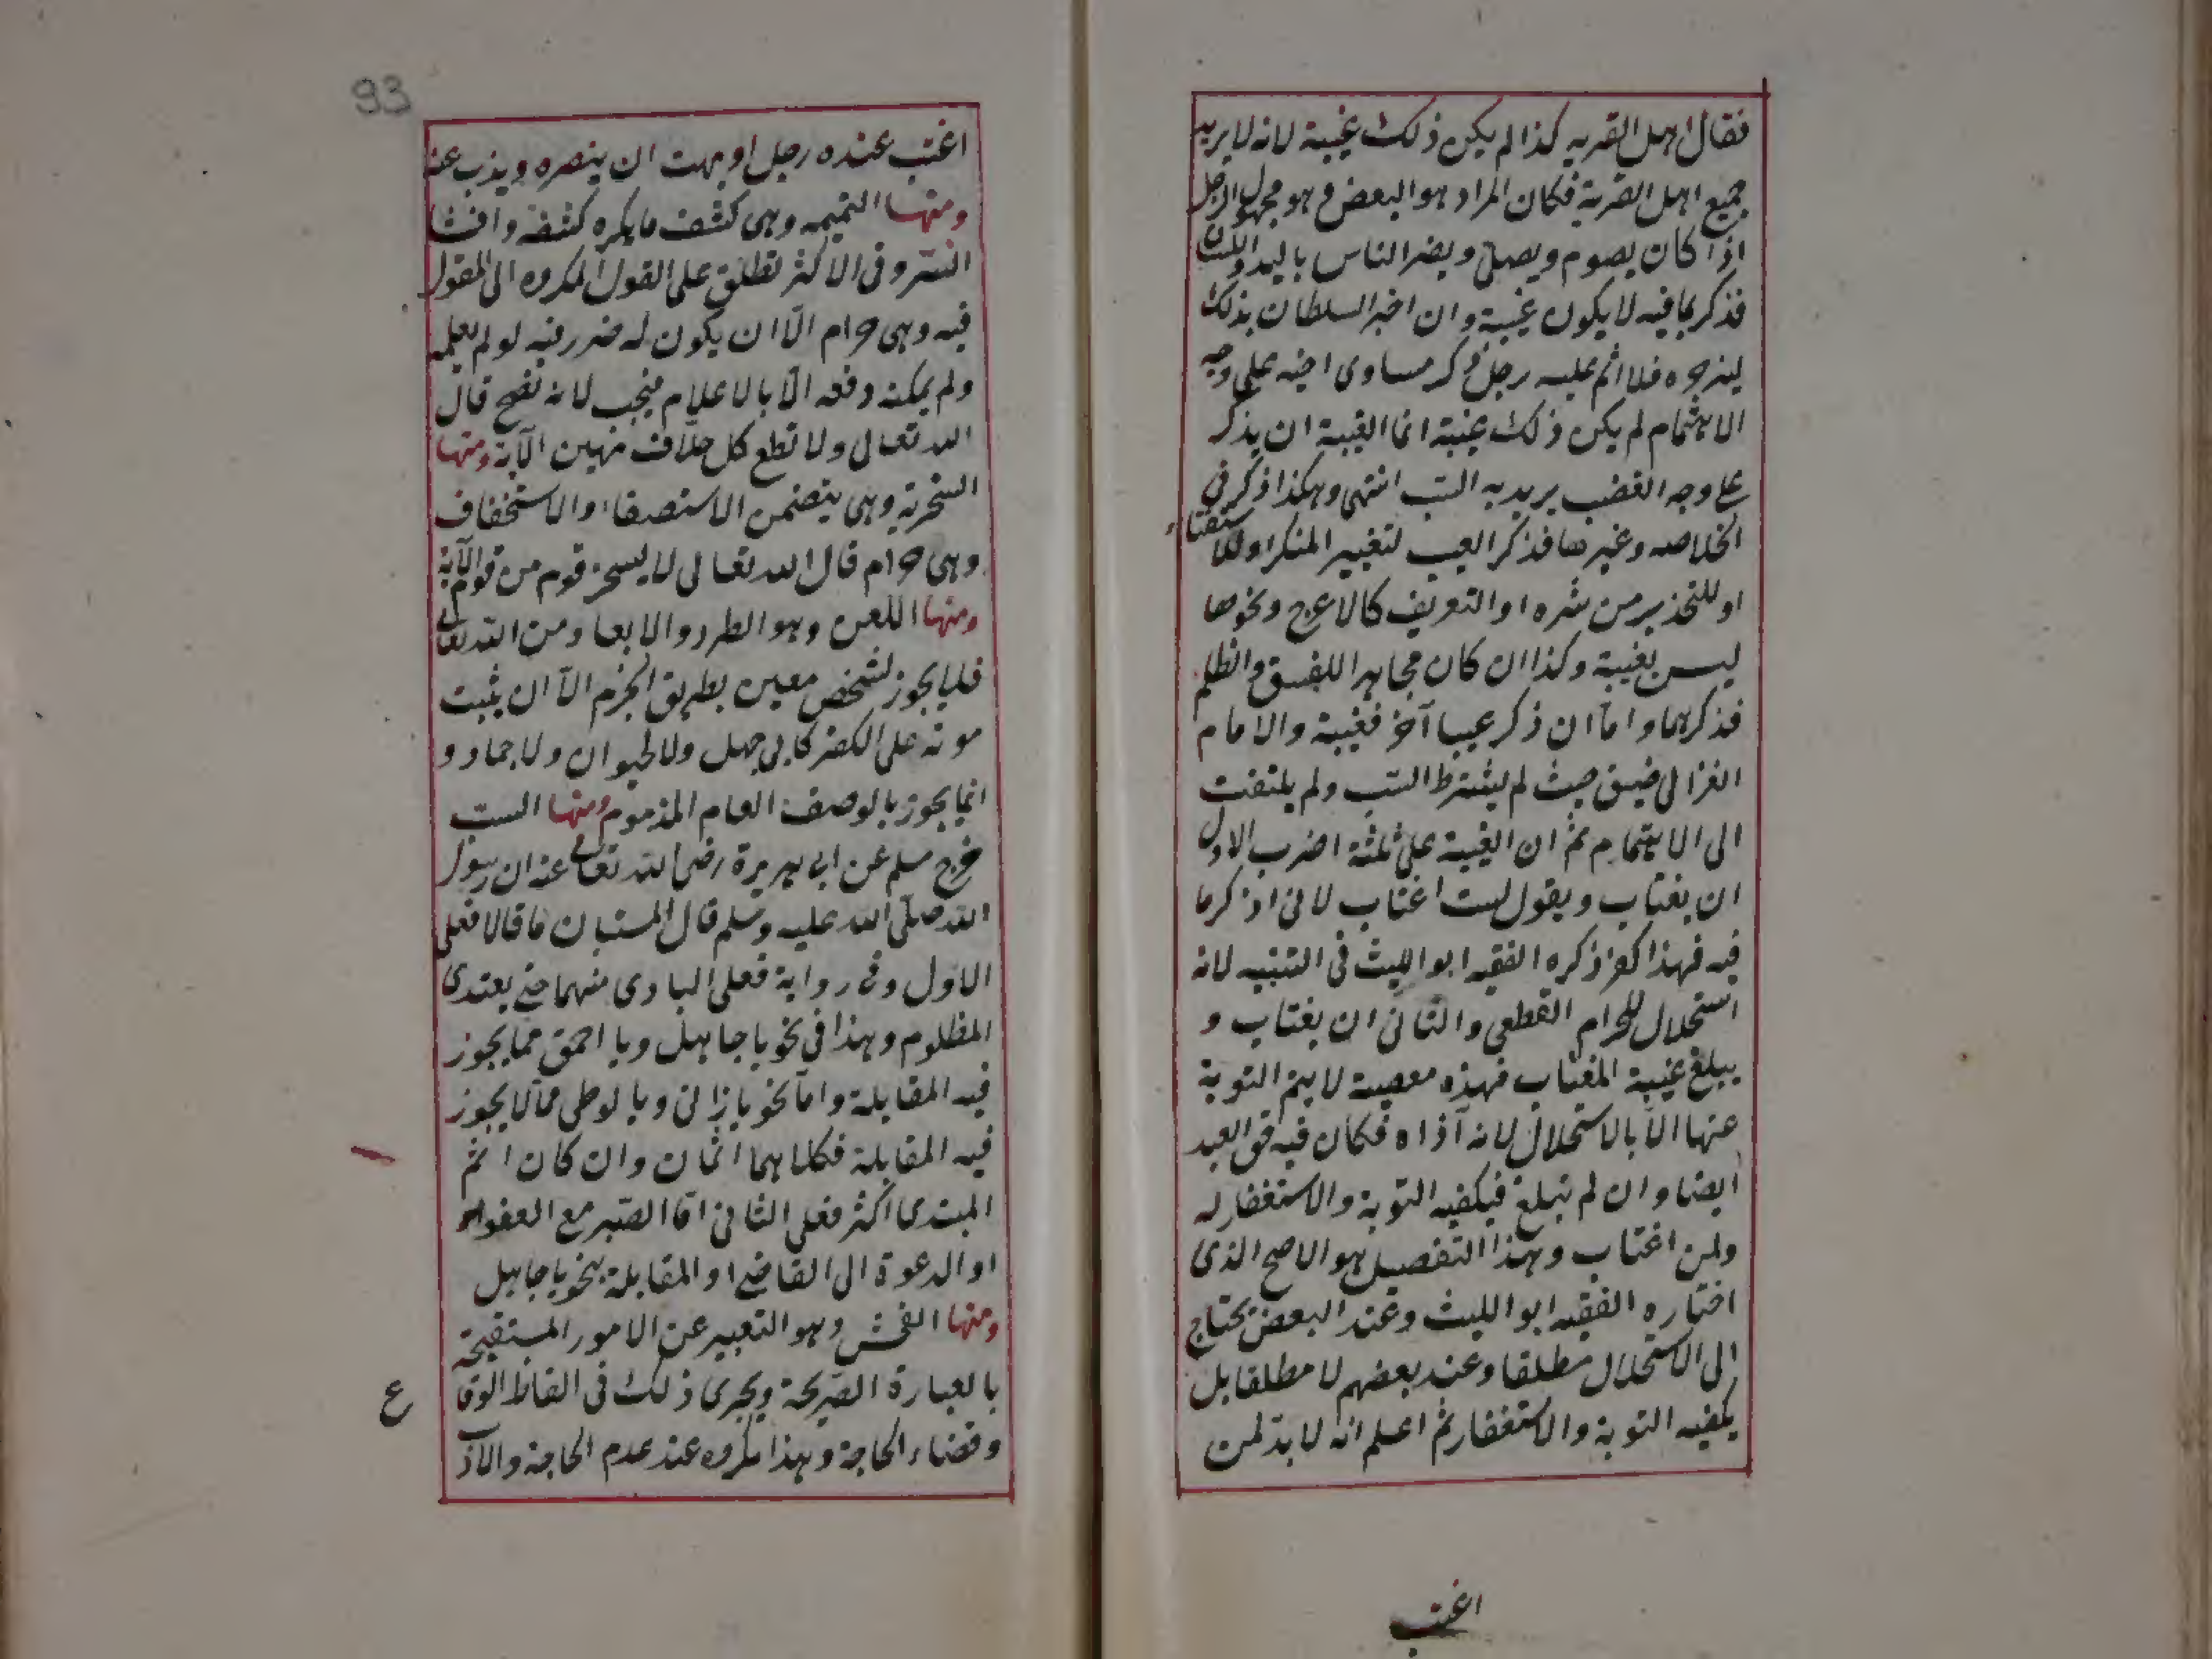 فقال اهل القريه كذا لم يكن ذلك غيبة لانه لا يريد
جميع اهل القرية فكان المراد هو البعض وهو مجهول الرجل
اذا كان يصوم ويصلي ويضر الناس باليد واللسان
فذكر بما فيه لا يكون غيبة وان اخبر السلطان بذلك
ليزجره فلا اثم عليه رجل ذكر مساوى اخيه على وجه
الاهتمام لم يكن ذلك غيبة انما الغيبة ان يذكر
على وجه الغضب يريد به السب انتهى وهكذا ذكر في
الخلاصه وغيرها فذكر العيب لتغيير المنكر او للاستفتاء
او للتحذير من شره او التعريف كالاعرج ونحوها
ليس بغيبة وكذا ان كان مجاهرا للفسق والظلم
فذكرهما واما ان ذكر عيبا آخر فغيبة والامام
الغزالى ضيق حيث لم يشترط السب ولم يلتفت
الى الاهتمام ثم ان الغيبة على ثلثة اضرب الاول
ان يغتاب ويقول لست اغتاب لانى اذكر ما
فيه فهذا كفر ذكره الفقيه ابو الليث فى التنبيه لانه
استحلال للحرام القطعى والثانى ان يغتاب و
يبلغ غيبة المغتاب فهذه معصية لا يتم التوبة
عنها الا بالاستحلال لانه آذاه فكان فيه حق العبد
ايضا وان لم تبلغ فيكفيه التوبة والاستغفار له
ولمن اغتاب وهذا التفصيل هو الاصح الذى
اختاره الفقيه ابو الليث وعند البعض يحتاج
الى الاستحلال مطلقا وعند بعضهم لا مطلقا بل
يكفيه التوبة والاستغفار ثم اعلم انه لا بد لمن
اغتب
93
اغتب عنده رجل او بهت ان ينصره ويذب عنه
ومنها النميمه وهى كشف ما يكره كشفه وافشا
السر وفى الاكثر تطلق على القول المكروه الى المقول
فيه وهى حرام الا ان يكون له ضرر فيه لو لم يعلمه
ولم يمكنه دفعه الا بالاعلام فيجب لانه نصح قال
الله تعالى ولا تطع كل حلاف مهين الآية ومنها
السخرية وهى يتضمن الاستصغار والاستخفاف
وهى حرام قال الله تعالى لا يسخر قوم من قوم الآية
ومنها اللعن وهو الطرد والابعاد من الله تعالى
فلا يجوز لشخص معين بطريق الجزم الا ان يثبت
موته على الكفر كابى جهل ولا لحيوان ولا جماد و
انما يجوز بالوصف العام المذموم ومنها السب
خرج مسلم عن ابى هريرة رضى الله تعالى عنه ان رسول
الله صلى الله عليه وسلم قال المستبان ما قالا فعلى
الاول وفى رواية فعلى البادى منهما حتى يعتدى
المظلوم وهذا فى نحو يا جاهل ويا احمق مما يجوز
فيه المقابلة واما نحو يا زانى ويا لوطى مما لا يجوز
فيه المقابلة فكلاهما آثمان وان كان اثم
المبتدى اكثر فعلى الثانى اما الصبر مع العفو
او الدعوة الى القاضى او المقابلة بنحو يا جاهل
ومنها الفحش وهو التعبير عن الامور المستقبحة
بالعبارة الصريحة ويجرى ذلك فى الفاظ الوقا
ع
وقضاء الحاجة وهذا مكروه عند عدم الحاجة والاذ